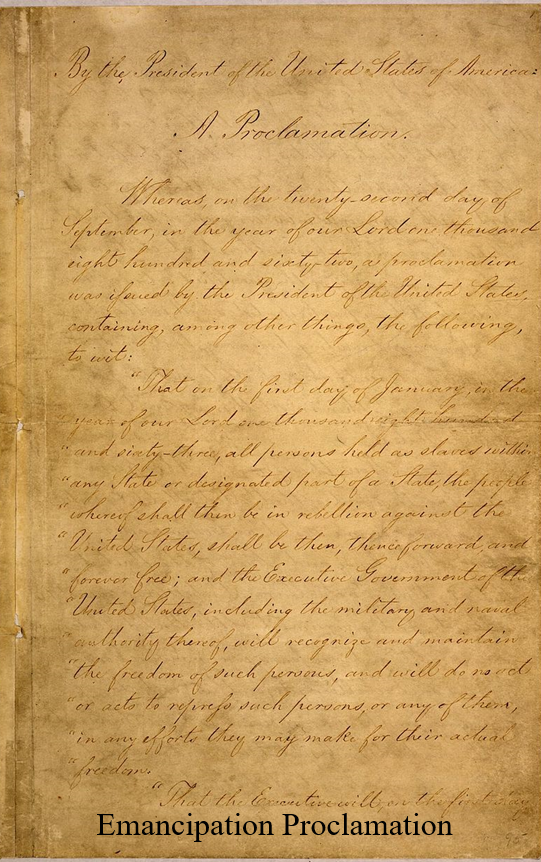 By the President of the United States of America:
A Proclamation.
Whereas, on the twenty-second day of
September, in the year of our Lord one thousand
eight hundred and sixty-two, a proclamation
was issued by the President of the United States,
containing, among other things, the following,
to wit:
"That on the first day of January, in the
"year of our Lord one thousand eight hundred
"and sixty-three, all persons held as slaves within
"any State or designated part of a State, the people
"whereof shall then be in rebellion against the
"United States, shall be then, thenceforward, and
"forever free; and the Executive Government of the
"United States, including the military and naval
"authority thereof, will recognize and maintain
"the freedom of such persons, and will do no act
"or acts to repress such persons, or any of them,
"in any efforts they may make for their actual
"freedom.
"That the Executive will, on the first day
Emancipation Proclamation